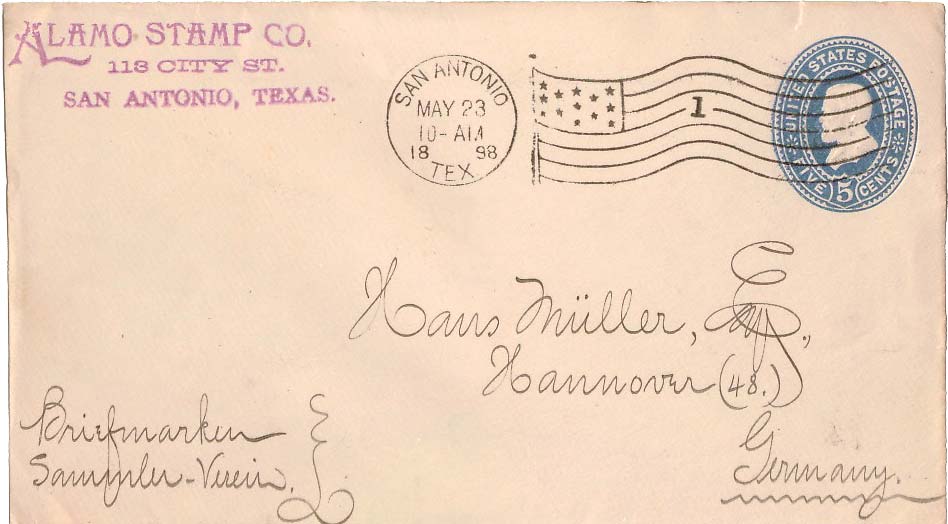 ALAMO STAMP CO.
118 CITY ST.
SAN ANTONIO, TEXAS.
SAN ANTONIO
MAY 23
10-AM
18 98
TEX.
1
UNITED STATES POSTAGE
FIVE 5 CENTS
Hans Müller, Esq.,
Hannover (48.)
Germany.
Briefmarken
Sammler-Verein.